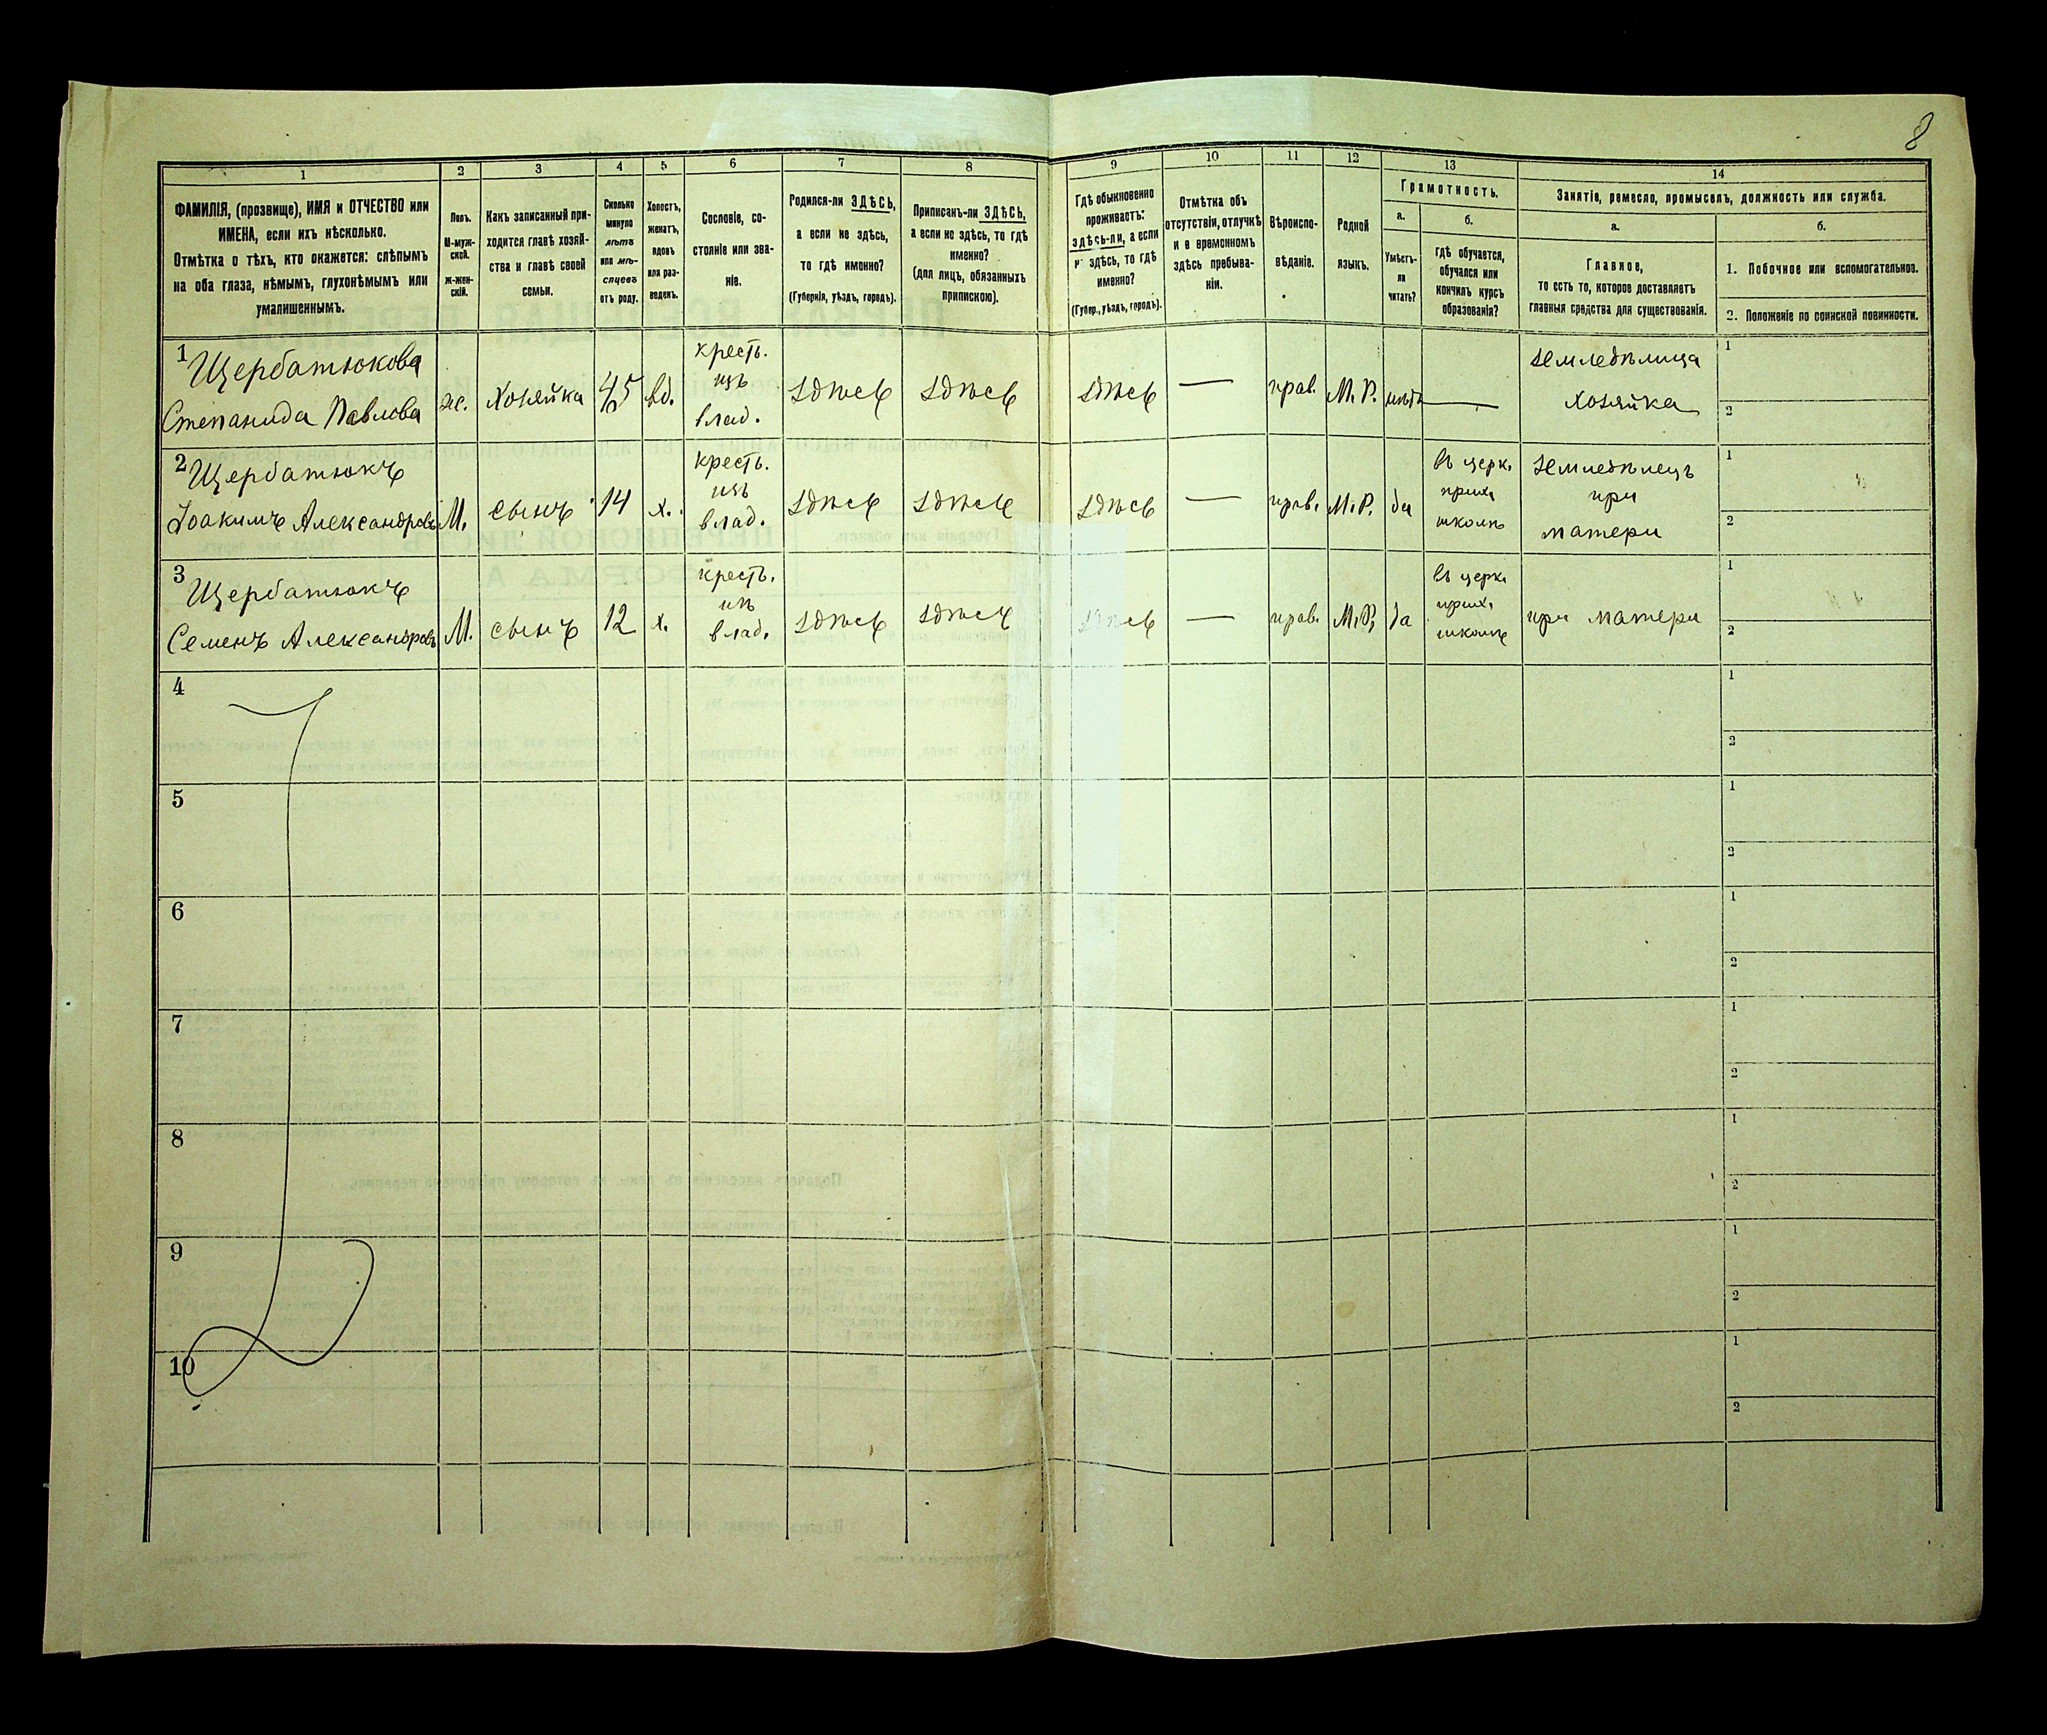 8
1
2
3
4
5
6
7
8
9
10
11
12
13
14
ФАМИЛІЯ, (прозвище), ИМЯ и ОТЧЕСТВО или
ИМЕНА, если ихъ нѣсколько.
Отмѣтка о тѣхъ, кто окажется: слѣпымъ
на оба глаза, нѣмымъ, глухонѣмымъ или
умалишеннымъ.
Полъ.
М-муж-
ской.
ж-жен-
скій.
Какъ записанный при-
ходится главѣ хозяй-
ства и главѣ своей
семьи.
Сколько
минуло
лѣтъ
или мѣ-
сяцевъ
отъ роду.
Холостъ,
женатъ,
вдовъ
или раз-
веденъ.
Сословіе, со-
стояніе или зва-
ніе.
Родился-ли ЗДѢСЬ,
а если не здѣсь,
то гдѣ именно?
(Губернія, уѣздъ, городъ).
Приписанъ-ли ЗДѢСЬ,
а если не здѣсь, то гдѣ
именно?
(для лицъ, обязанныхъ
припискою).
Гдѣ обыкновенно
проживаетъ:
здѣсь-ли, а если
не здѣсь, то гдѣ
именно?
(Губер., уѣздъ, городъ).
Отмѣтка объ
отсутствіи, отлучкѣ
и о временномъ
здѣсь пребыва-
ніи.
Вѣроиспо-
вѣданіе.
Родной
языкъ.
Грамотность.
а.
Умѣетъ-
ли
читать?
б.
гдѣ обучается,
обучался или
кончилъ курсъ
образованія?
Занятіе, ремесло, промыселъ, должность или служба.
а.
Главное,
то есть то, которое доставляетъ
главныя средства для существованія.
б.
1. Побочное или вспомогательное.
2. Положеніе по воинской повинности.
1
Щербатюкова
Степанида Павлова
ж.
хозяйка
45
вд.
кресть.
изъ
влад.
здѣсь
здѣсь
здѣсь
—
прав.
М.Р.
нѣтъ
—
земледѣлица
хозяйка
1
2
2
Щербатюкъ
Іоакимъ Александровъ
М.
сынъ
14
х.
кресть.
изъ
влад.
здѣсь
здѣсь
здѣсь
—
прав.
М.Р.
да
въ церк.
прих.
школѣ
земледѣлецъ
при
матери
1
2
3
Щербатюкъ
Семенъ Александровъ
М.
сынъ
12
х.
кресть.
изъ
влад.
здѣсь
здѣсь
здѣсь
—
прав.
М.Р.
да
въ церк.
прих.
школѣ
при матери
1
2
4
1
2
5
1
2
6
1
2
7
1
2
8
1
2
9
1
2
10
1
2